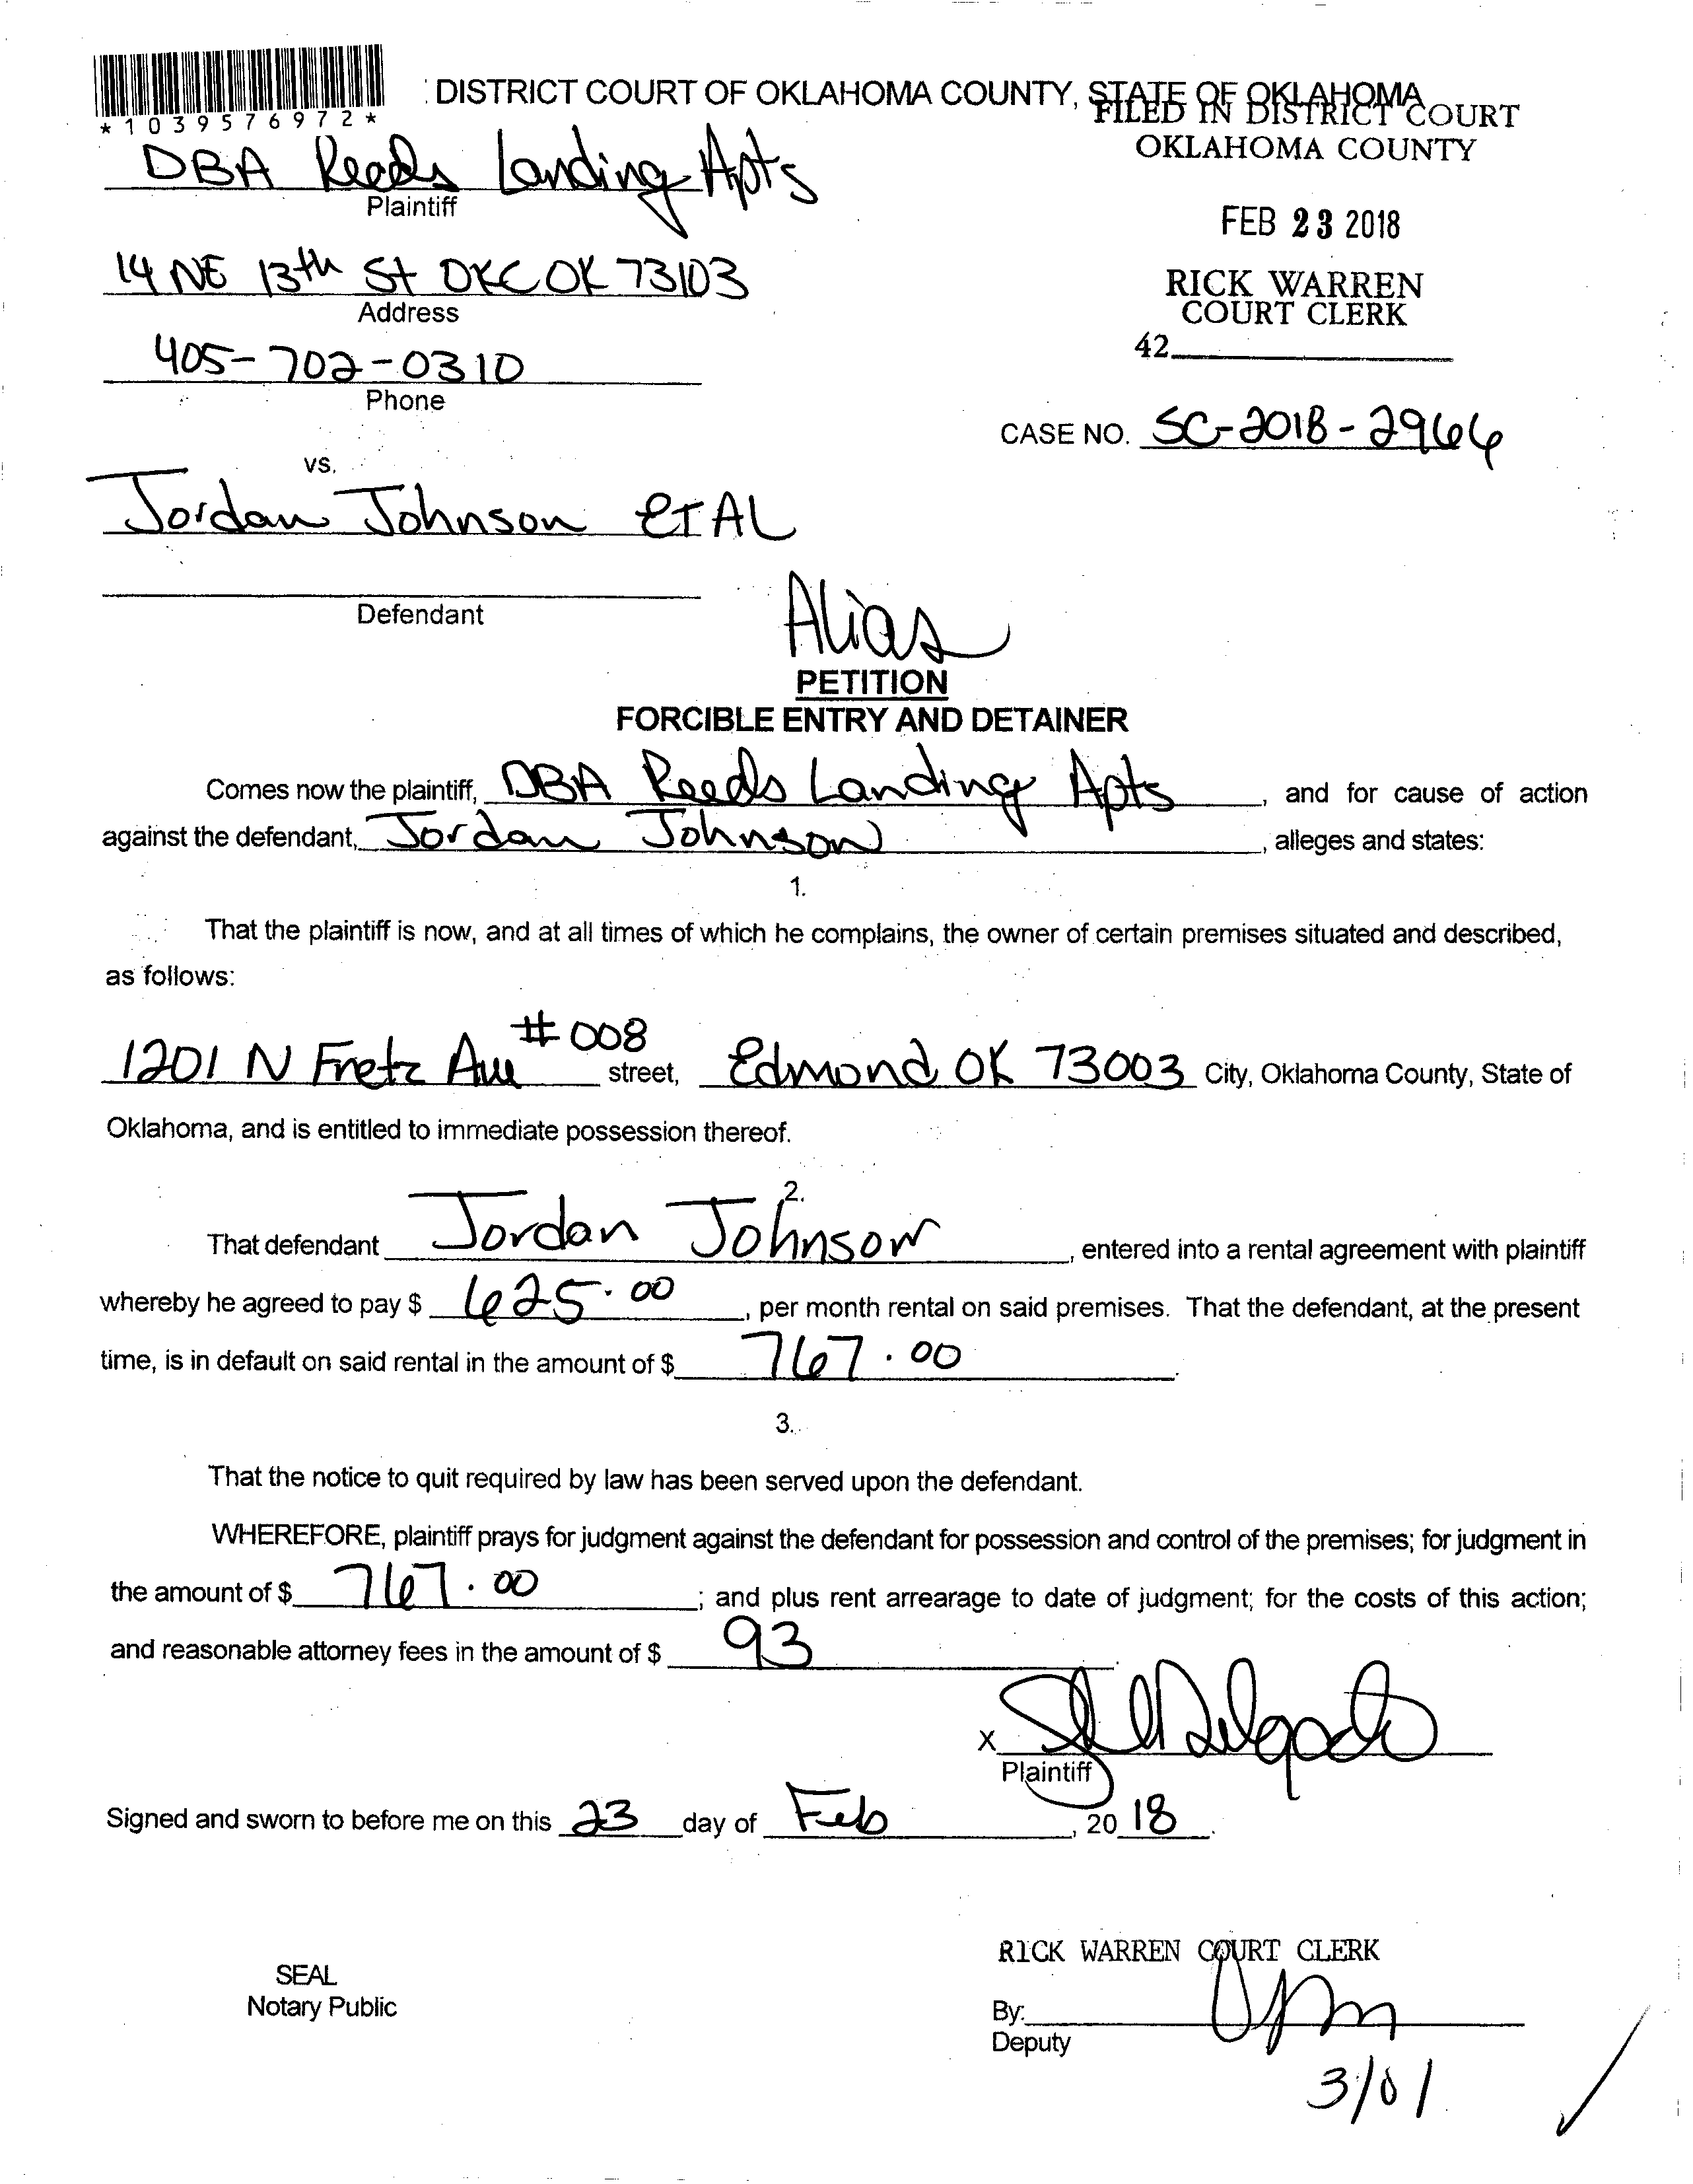 : DISTRICT COURT OF OKLAHOMA COUNTY, STATE OF OKLAHOMA
*1039576972*
FILED IN DISTRICT COURT
OKLAHOMA COUNTY
DBA Reeds Landing Apts
Plaintiff
FEB 23 2018
14 NE 13th St OKC OK 73103
Address
RICK WARREN
COURT CLERK
42
405-702-0310
Phone
CASE NO. SC-2018-2966
vs.
Jordan Johnson ETAL
Defendant
Alias
PETITION
FORCIBLE ENTRY AND DETAINER
Comes now the plaintiff, DBA Reeds Landing Apts, and for cause of action
against the defendant, Jordan Johnson, alleges and states:
1.
That the plaintiff is now, and at all times of which he complains, the owner of certain premises situated and described,
as follows:
1201 N Fretz Ave #008 street, Edmond OK 73003 City, Oklahoma County, State of
Oklahoma, and is entitled to immediate possession thereof.
2.
That defendant Jordan Johnson, entered into a rental agreement with plaintiff
whereby he agreed to pay $ 625.00, per month rental on said premises. That the defendant, at the present
time, is in default on said rental in the amount of $ 767.00.
3.
That the notice to quit required by law has been served upon the defendant.
WHEREFORE, plaintiff prays for judgment against the defendant for possession and control of the premises; for judgment in
the amount of $ 767.00; and plus rent arrearage to date of judgment; for the costs of this action;
and reasonable attorney fees in the amount of $ 93.
X
Plaintiff
Signed and sworn to before me on this 23 day of Feb, 20 18.
RICK WARREN COURT CLERK
SEAL
Notary Public
By:
Deputy
3/01